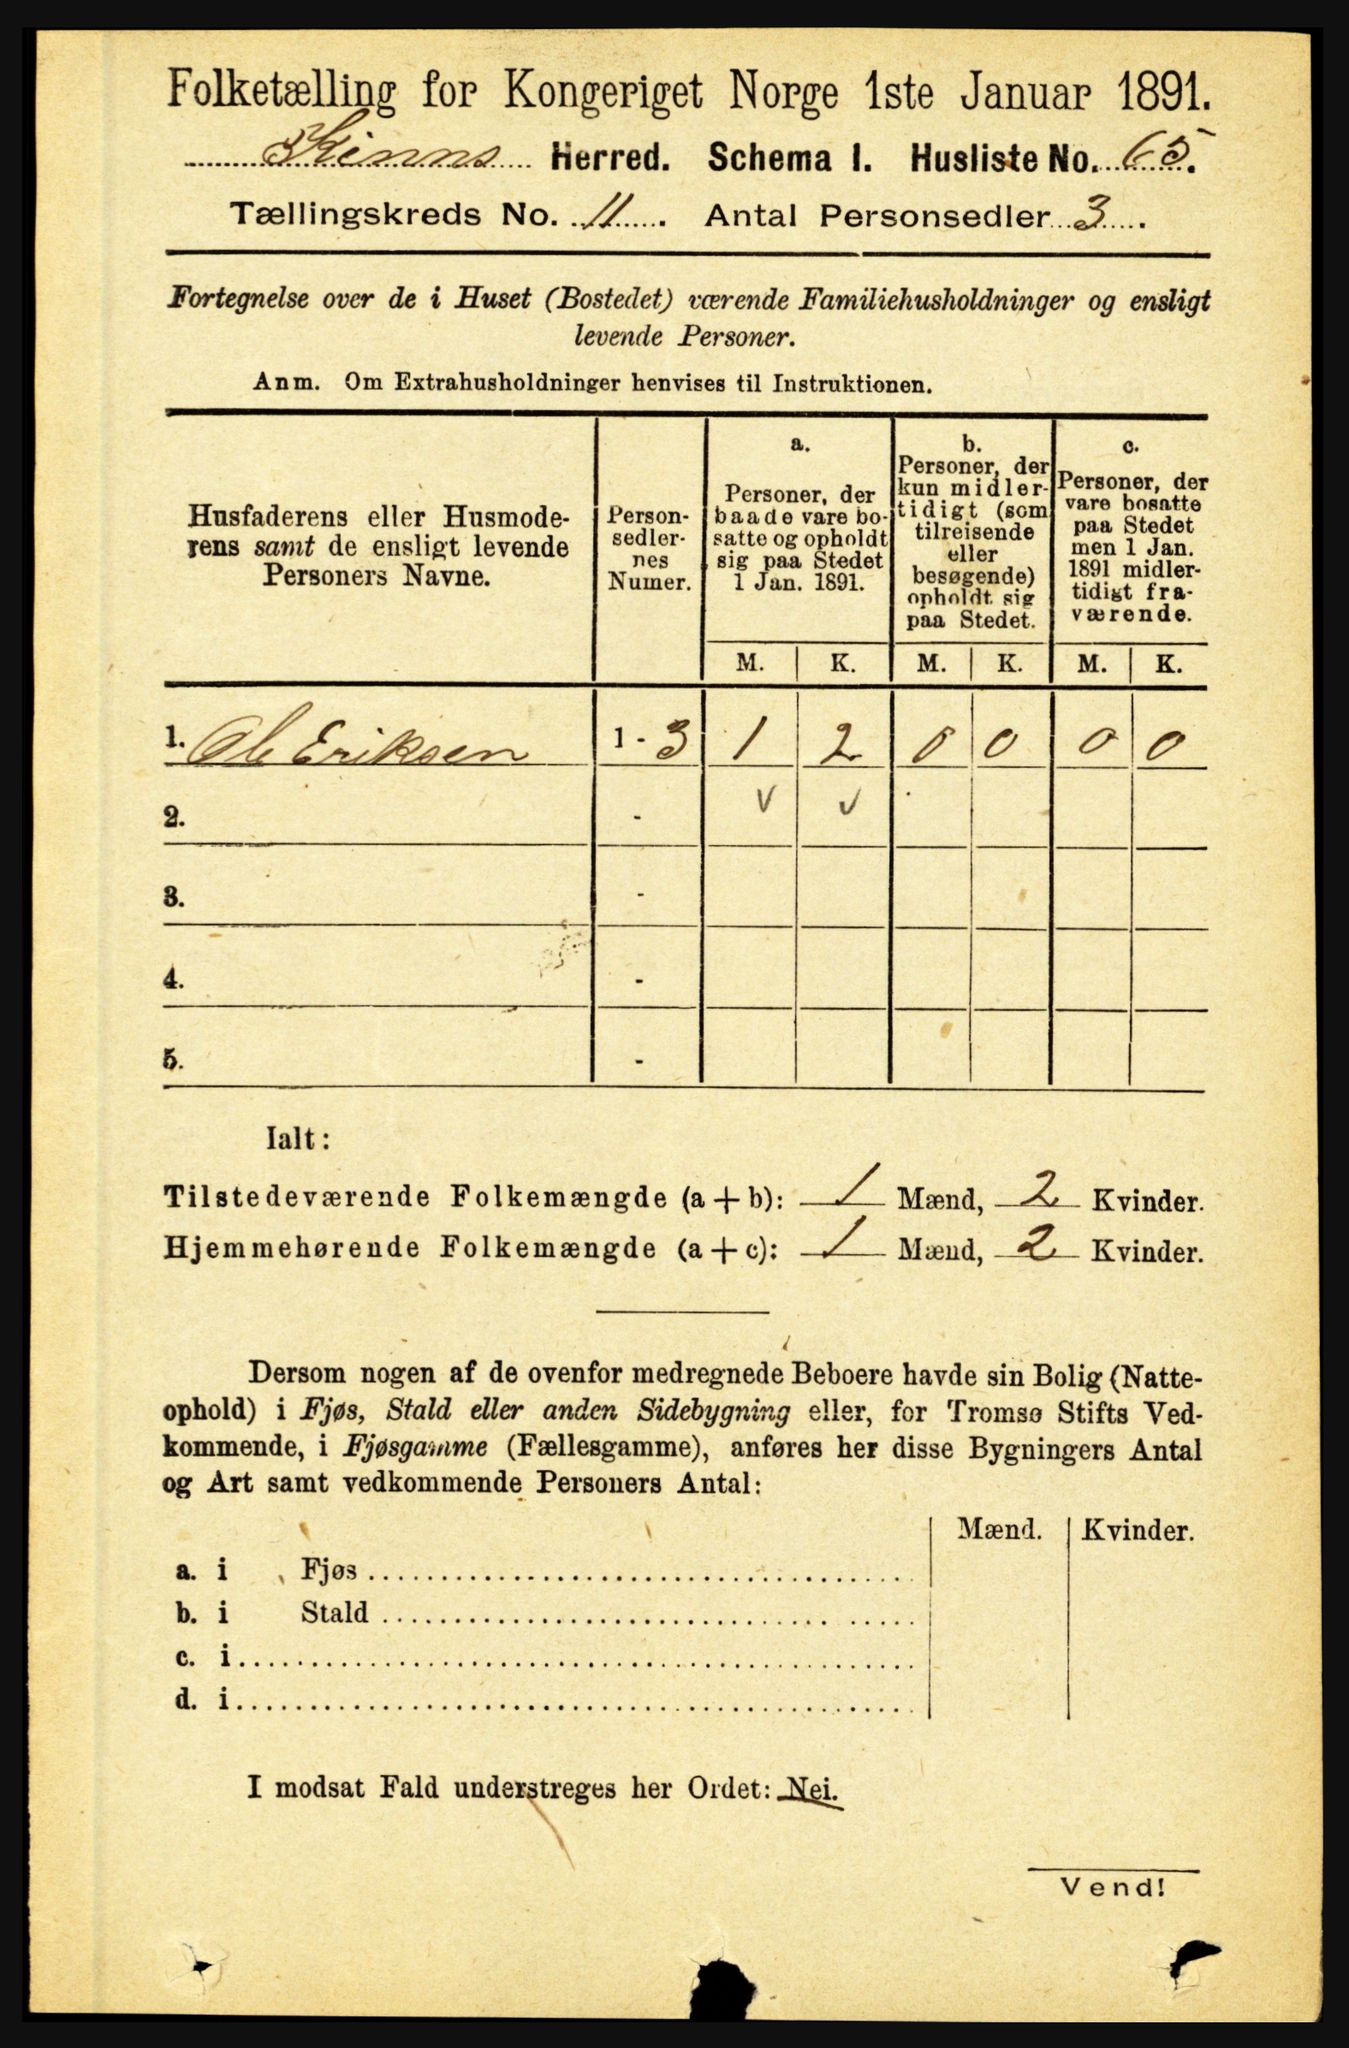 Folketælling for Kongeriget Norge 1ste Januar 1891.
Kinns Herred. Schema I. Husliste No. 65.
Tællingskreds No. 11. Antal Personsedler 3.
Fortegnelse over de i Huset (Bostedet) værende Familiehusholdninger og ensligt
levende Personer.
Anm. Om Extrahusholdninger henvises til Instruktionen.
Husfaderens eller Husmode-
rens samt de ensligt levende
Personers Navne.
Person-
sedler-
nes
Numer.
a.
Personer, der
baade vare bo-
satte og opholdt
sig paa Stedet
1 Jan. 1891.
b.
Personer, der
kun midler-
tidigt (som
tilreisende
eller
besøgende)
opholdt sig
paa Stedet.
c.
Personer, der
vare bosatte
paa Stedet
men 1 Jan.
1891 midler-
tidigt fra-
værende.
M. K. M. K. M. K.
1. Ole Eriksen 1 - 3 1 2 0 0 0 0
2. - v v
3. -
4. -
5. -
Ialt:
Tilstedeværende Folkemængde (a + b): 1 Mænd, 2 Kvinder.
Hjemmehørende Folkemængde (a + c): 1 Mænd, 2 Kvinder.
Dersom nogen af de ovenfor medregnede Beboere havde sin Bolig (Natte-
ophold) i Fjøs, Stald eller anden Sidebygning eller, for Tromsø Stifts Ved-
kommende, i Fjøsgamme (Fællesgamme), anføres her disse Bygningers Antal
og Art samt vedkommende Personers Antal:
Mænd. Kvinder.
a. i Fjøs
b. i Stald
c. i
d. i
I modsat Fald understreges her Ordet: Nei.
Vend!